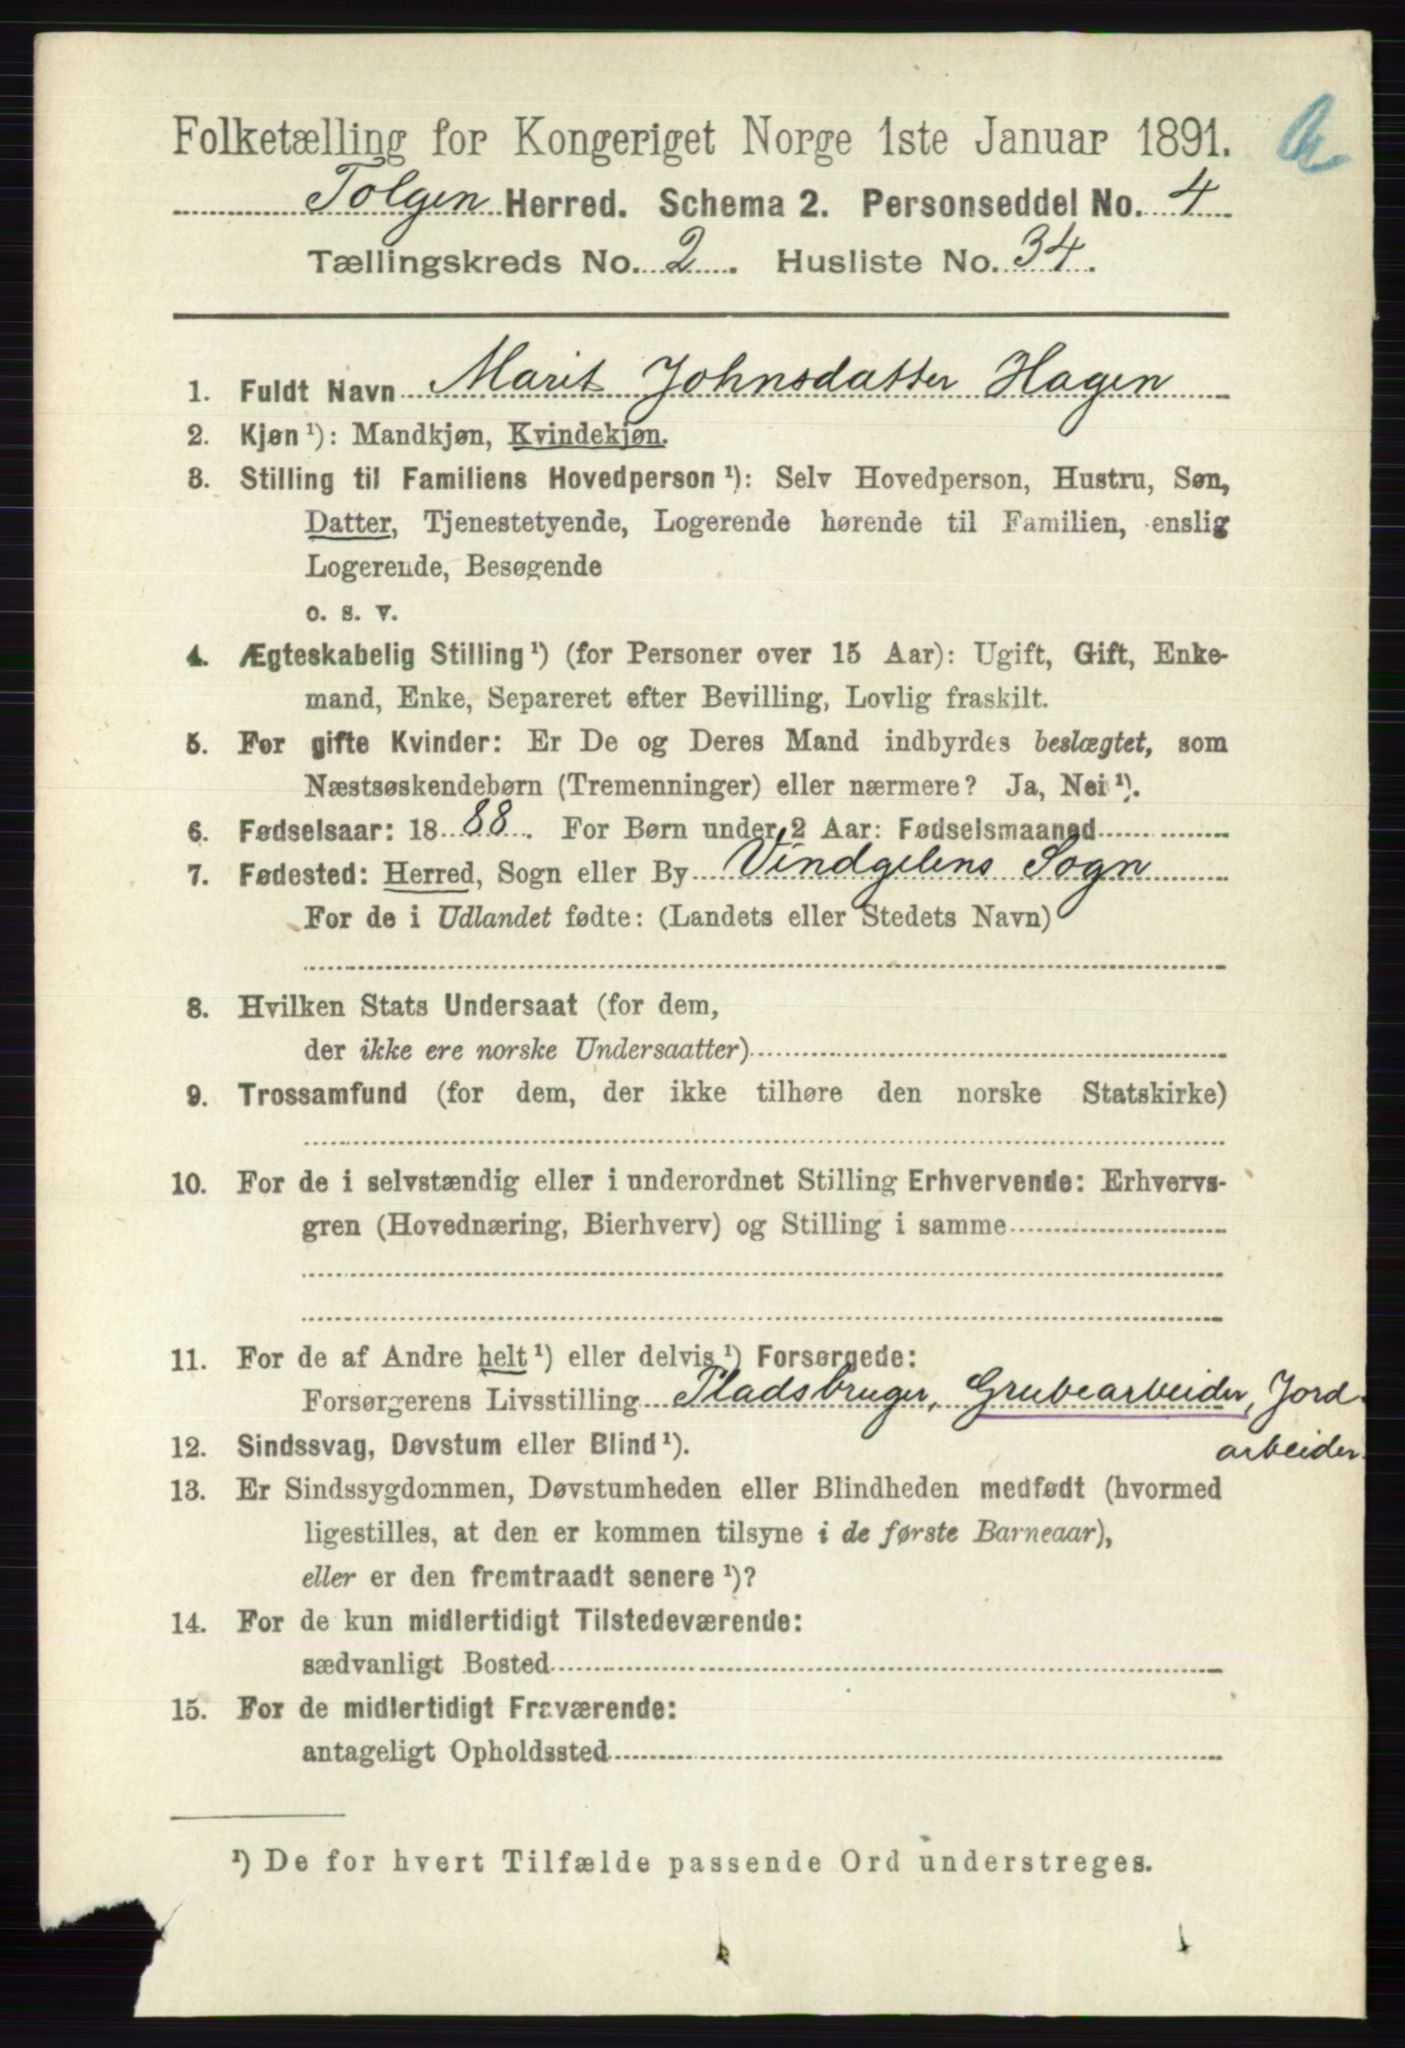 Folketælling for Kongeriget Norge 1ste Januar 1891.
Tolgen Herred. Schema 2. Personseddel No. 4
Tællingskreds No. 2. Husliste No. 34.
1. Fuldt Navn Marit Johnsdatter Hagen
2. Kjøn ¹): Mandkjøn, Kvindekjøn.
3. Stilling til Familiens Hovedperson ¹): Selv Hovedperson, Hustru, Søn,
Datter, Tjenestetyende, Logerende hørende til Familien, enslig
Logerende, Besøgende
o. s. v.
4. Ægteskabelig Stilling ¹) (for Personer over 15 Aar): Ugift, Gift, Enke-
mand, Enke, Separeret efter Bevilling, Lovlig fraskilt.
5. For gifte Kvinder: Er De og Deres Mand indbyrdes beslægtet, som
Næstsøskendebørn (Tremenninger) eller nærmere? Ja, Nei ¹).
6. Fødselsaar: 1888. For Børn under 2 Aar: Fødselsmaaned
7. Fødested: Herred, Sogn eller By Vindgelens Sogn
For de i Udlandet fødte: (Landets eller Stedets Navn)
8. Hvilken Stats Undersaat (for dem,
der ikke ere norske Undersaatter)
9. Trossamfund (for dem, der ikke tilhøre den norske Statskirke)
10. For de i selvstændig eller i underordnet Stilling Erhvervende: Erhvervs-
gren (Hovednæring, Bierhverv) og Stilling i samme
11. For de af Andre helt ¹) eller delvis ¹) Forsørgede:
Forsørgerens Livsstilling Pladsbruger, Grubearbeider, Jord-
arbeider.
12. Sindssvag, Døvstum eller Blind ¹).
13. Er Sindssygdommen, Døvstumheden eller Blindheden medfødt (hvormed
ligestilles, at den er kommen tilsyne i de første Barneaar),
eller er den fremtraadt senere ¹)?
14. For de kun midlertidigt Tilstedeværende:
sædvanligt Bosted
15. For de midlertidigt Fraværende:
antageligt Opholdssted
¹) De for hvert Tilfælde passende Ord understreges.